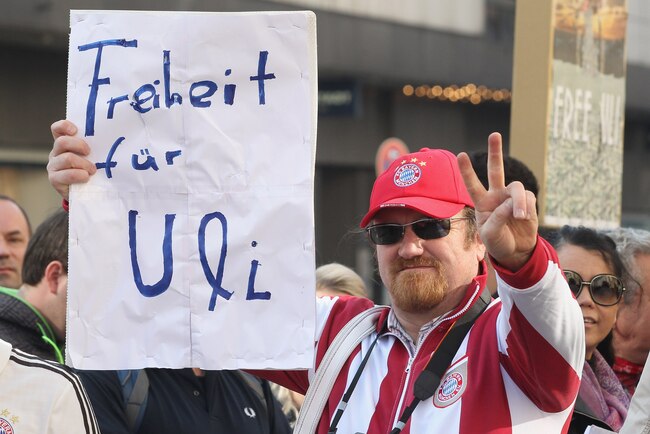 Freiheit
für
Uli
FREE ULI